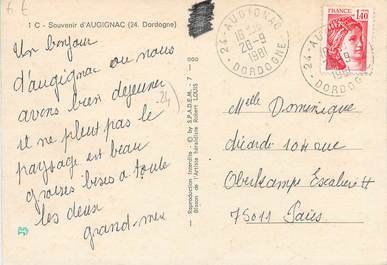 6 €
1 C - Souvenir d'AUGIGNAC (24. Dordogne)
Un bonjour
d'augignac ou nous
avons bien dejeuner
et ne pleut pas le
paysage est beau
grosses bises a toute
les deux
grand-mere
24
Reproduction Interdite - © by S.P.A.D.E.M. 7
Blason de l'Artiste héraldiste Robert LOUIS
24 - AUGIGNAC
16 H
28-9
1981
DORDOGNE
24 - AUGIGNAC
1981
DORDOGNE
FRANCE
1,40
Melle Dominique
10 rue
Oberkampf Escalier H
75011 Paris